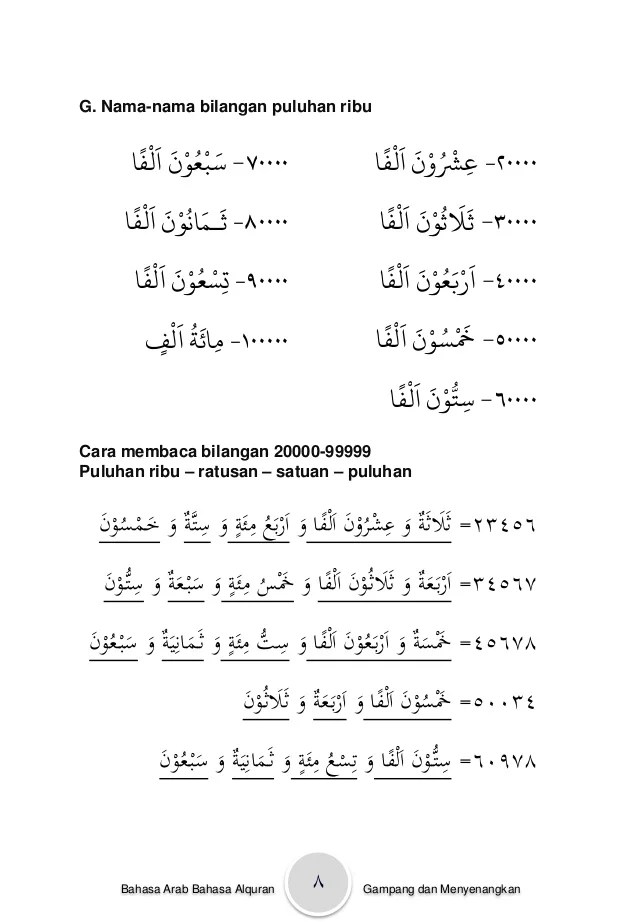 G. Nama-nama bilangan puluhan ribu
٢٠٠٠٠- عِشْرُوْنَ اَلْفًا
٧٠٠٠٠- سَبْعُوْنَ اَلْفًا
٣٠٠٠٠- ثَلَاثُوْنَ اَلْفًا
٨٠٠٠٠- ثَـمَانُوْنَ اَلْفًا
٤٠٠٠٠- اَرْبَعُوْنَ اَلْفًا
٩٠٠٠٠- تِسْعُوْنَ اَلْفًا
٥٠٠٠٠- خَمْسُوْنَ اَلْفًا
١٠٠٠٠٠- مِائَةُ اَلْفٍ
٦٠٠٠٠- سِتُّوْنَ اَلْفًا
Cara membaca bilangan 20000-99999
Puluhan ribu – ratusan – satuan – puluhan
٢٣٤٥٦= ثَلَاثَةٌ وَ عِشْرُوْنَ اَلْفًا وَ اَرْبَعُ مِئَةٍ وَ سِتَّةٌ وَ خَمْسُوْنَ
٣٤٥٦٧= اَرْبَعَةٌ وَ ثَلَاثُوْنَ اَلْفًا وَ خَمْسُ مِئَةٍ وَ سَبْعَةٌ وَ سِتُّوْنَ
٤٥٦٧٨= خَمْسَةٌ وَ اَرْبَعُوْنَ اَلْفًا وَ سِتُّ مِئَةٍ وَ ثَمَانِيَةٌ وَ سَبْعُوْنَ
٥٠٠٣٤= خَمْسُوْنَ اَلْفًا وَ اَرْبَعَةٌ وَ ثَلَاثُوْنَ
٦٠٩٧٨= سِتُّوْنَ اَلْفًا وَ تِسْعُ مِئَةٍ وَ ثَمَانِيَةٌ وَ سَبْعُوْنَ
Bahasa Arab Bahasa Alquran ٨ Gampang dan Menyenangkan